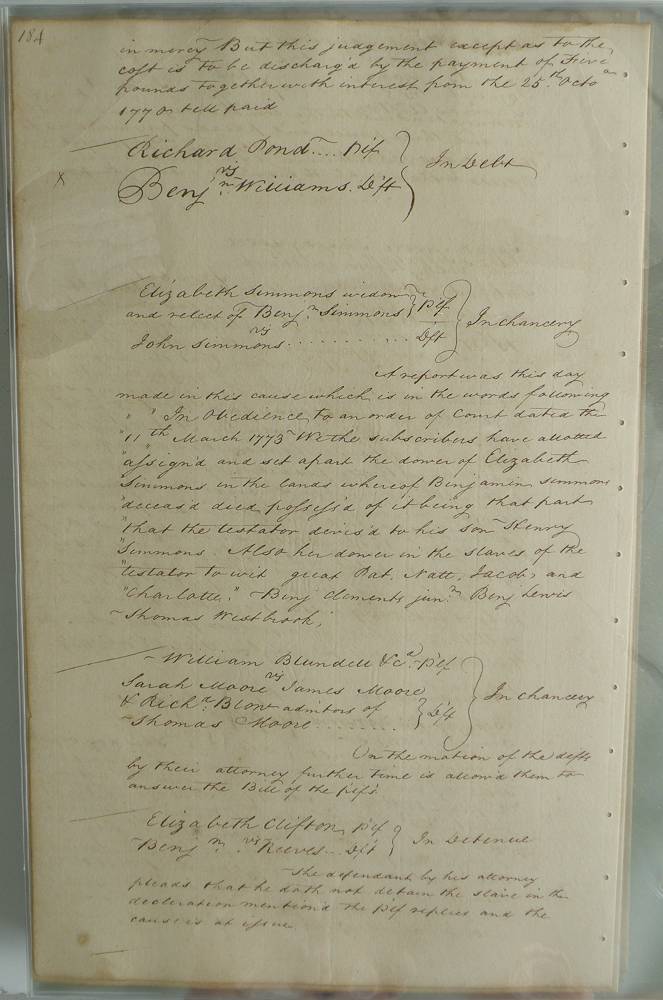 184
in mercy But this judgement except as to the
cost is to be discharg'd by the payment of Five
pounds together with interest from the 25th Octo
177 till paid
Richard Pond .... Plf
vs
Benjn Williams. Dft
In Debt
x
Elizabeth Simmons widow
and relect of Benjn Simmons Plf
vs
John Simmons .......... Dft
In Chancery
A report was this day
made in this cause which is in the words following
" " In Obedience to an order of Court dated the
"11th March 1773 We the subscribers have allotted
"assign'd and set apart the dower of Elizabeth
Simmons in the lands whereof Benjamin Simmons
"deceas'd died possess'd of it being that part
"that the testator devis'd to his son Henry
"Simmons. Also her dower in the slaves of the
"testator to wit great Pat, Natt, Jacob, and
"Charlotte." Benj Clements junr Benj Lewis
Thomas Westbrook,
William Blundell & Ca Plf
vs
Sarah Moore James Moore
& Richd Blow admitors of
Thomas Moore ........ Dft
In Chancery
On the motion of the defts
by their attorney further time is allow'd them to
answer the Bill of the plfs
Elizabeth Clifton Plf
vs
Benjn Reeves ... Dft
In Detenue
The defendant by his attorney
pleads that he doth not detain the slave in the
decleration mention'd the plf replies and the
cause is at issue